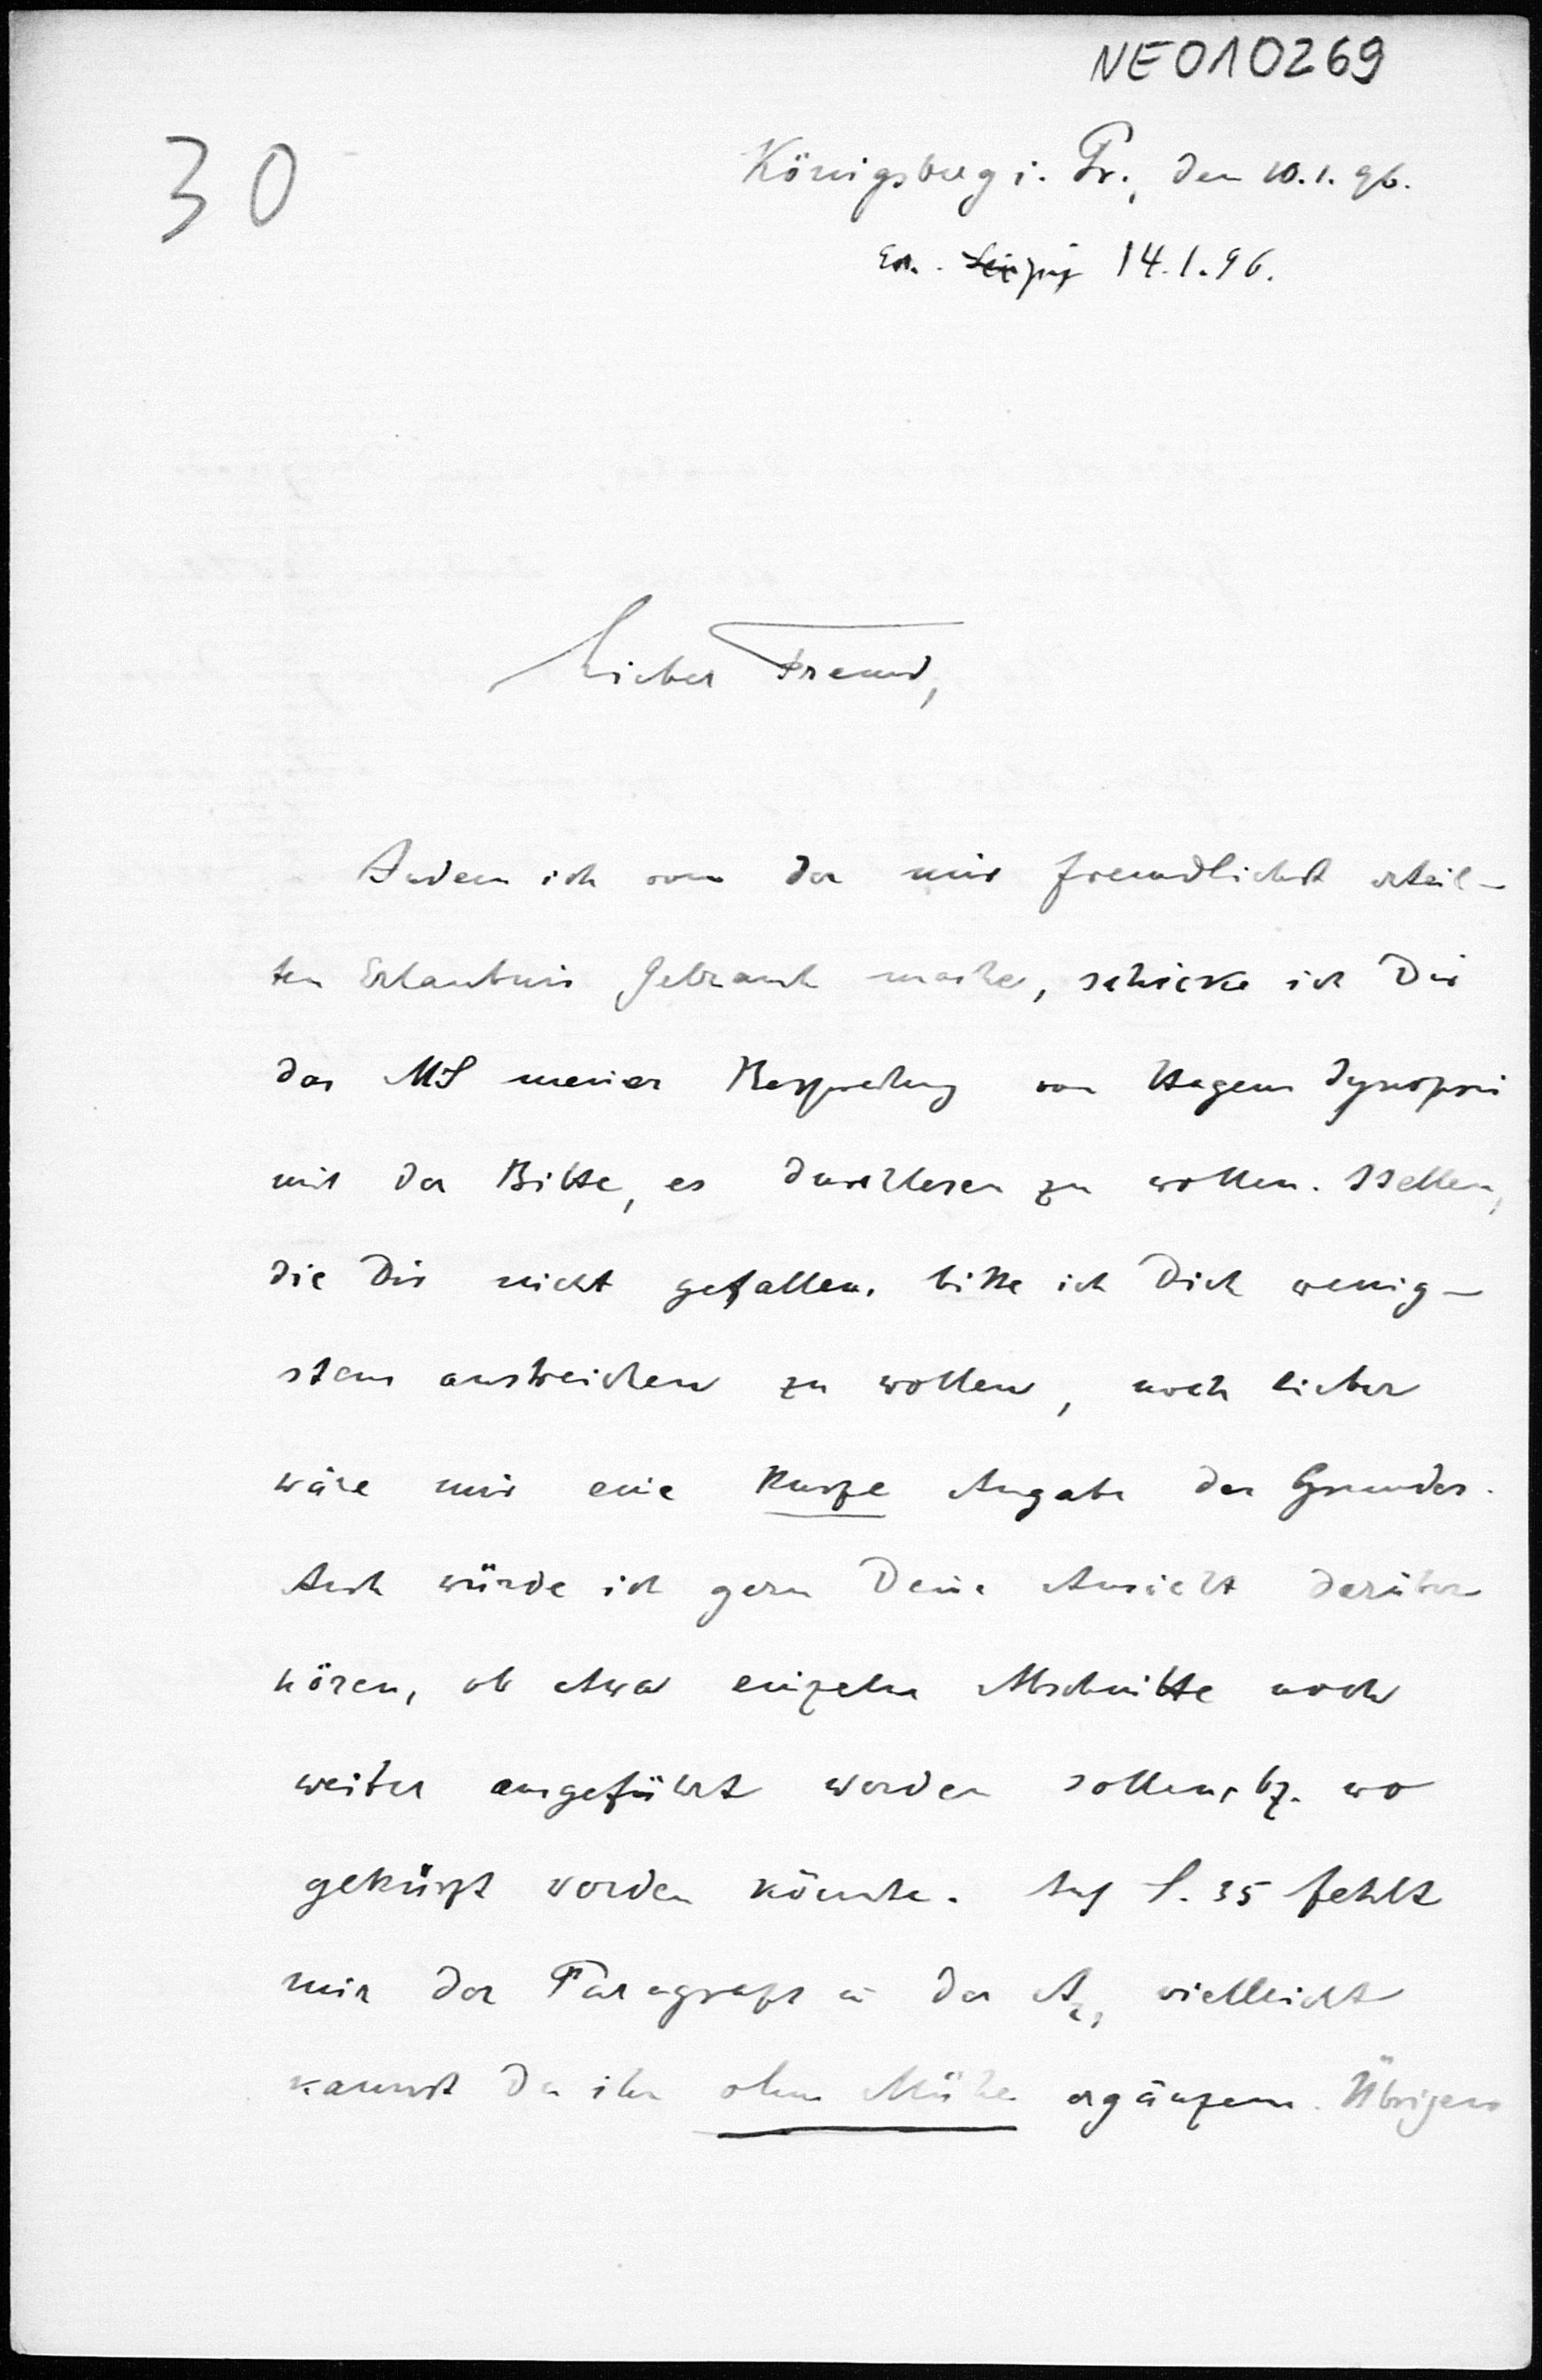 NE010269
30
Königsberg i. Pr., den 10.1.96.
Leipzig 14.1.96.
Lieber Freund,
Indem ich von der mir freundlichst erteil-
ten Erlaubnis Gebrauch mache, schicke ich Dir
das MS meiner Besprechung von Hagens Synopsis
mit der Bitte, es durchlesen zu wollen. Stellen,
die Dir nicht gefallen, bitte ich Dich wenig-
stens anstreichen zu wollen, noch lieber
wäre mir eine kurze Angabe des Grundes.
Auch würde ich gern Deine Ansicht darüber
hören, ob etwa einzelne Abschnitte noch
weiter ausgeführt werden sollen, bz. wo
gekürzt werden könnte. Auf S. 35 fehlt
mir der Paragraph in der vielleicht
kannst Du ihn ohne Mühe ergänzen. Übrigens